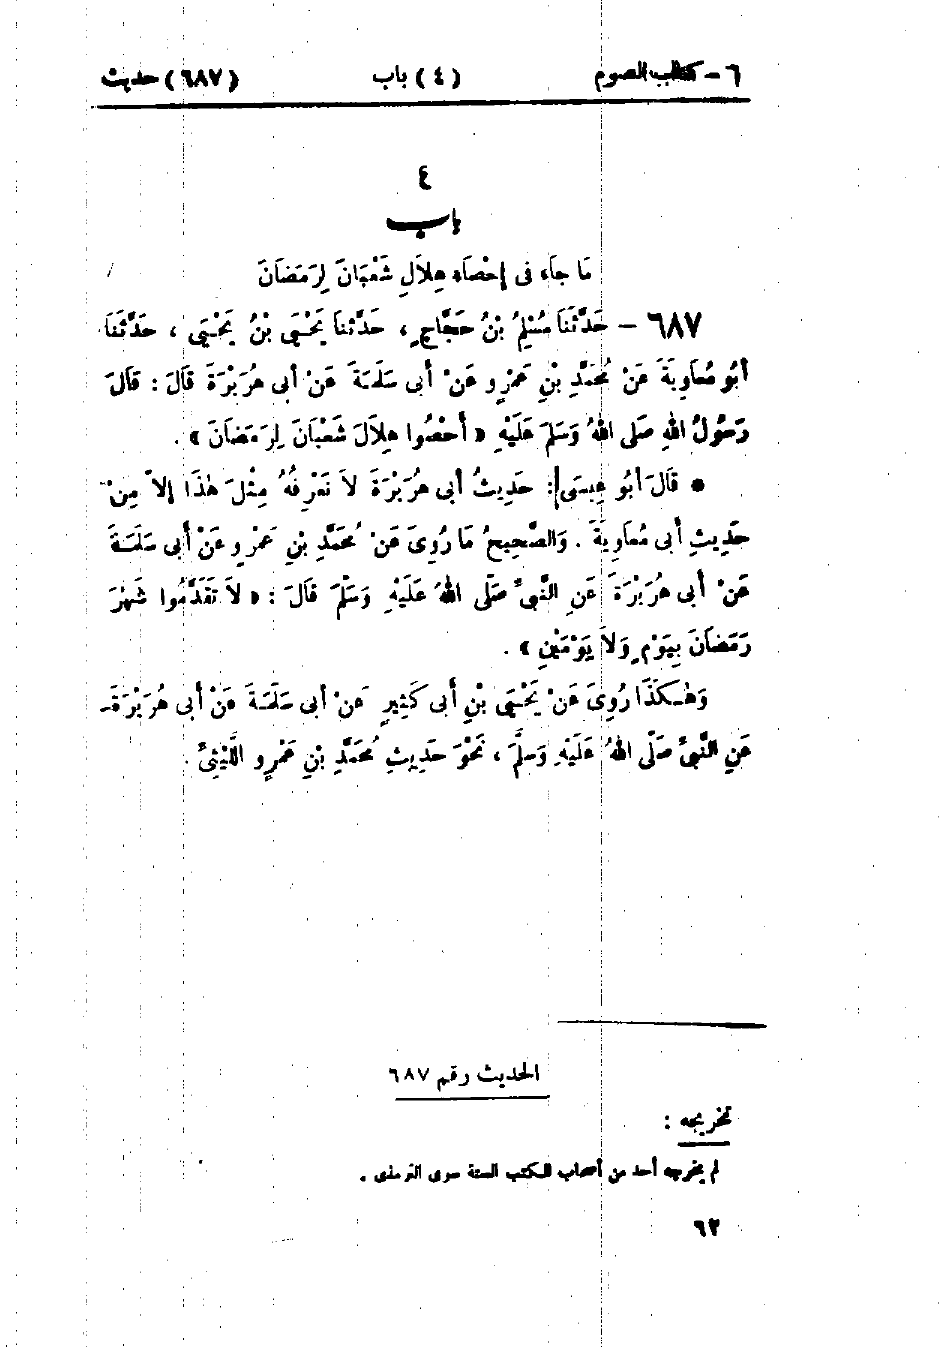 ٦ - كتاب الصوم (٤) باب (٦٨٧) حديث
٤
باب
مَا جَاءَ فى إحْصَاءِ هِلاَلِ شَعْبَانَ لِرَمَضَانَ
٦٨٧ - حَدَّثَنَا مُسْلِمُ بْنُ حَجَّاجٍ، حَدَّثَنَا يَحْيَى بْنُ يَحْيَى، حَدَّثَنَا
أبُو مُعَاوِيَةَ عَنْ مُحَمَّدِ بْنِ عَمْرٍو عَنْ أبى سَلَمَةَ عَنْ أبى هُرَيْرَةَ قَالَ: قَالَ
رَسُولُ اللهِ صَلى اللهُ وَسَلمَ عَلَيْهِ «أحْصُوا هِلاَلَ شَعْبَانَ لِرَمَضَانَ».
● قَالَ أبُو عِيسَى: حَدِيثُ أبى هُرَيْرَةَ لاَ نَعْرِفُهُ مِثْلَ هٰذَا إلاَّ مِنْ
حَدِيثِ أبى مُعَاوِيَةَ. وَالصَّحِيحُ مَا رُوِىَ عَنْ مُحَمَّدِ بْنِ عَمْرٍو عَنْ أبى سَلَمَةَ
عَنْ أبى هُرَيْرَةَ عَنِ النَّبىِّ صَلَّى اللهُ عَلَيْهِ وَسَلَّمَ قَالَ: «لاَ تَقَدَّمُوا شَهْرَ
رَمَضَانَ بِيَوْمٍ وَلاَ يَوْمَيْنِ».
وَهٰكَذَا رُوِىَ عَنْ يَحْيَى بْنِ أبى كَثِيرٍ عَنْ أبى سَلَمَةَ عَنْ أبى هُرَيْرَةَ
عَنِ النَّبىِّ صَلَّى اللهُ عَلَيْهِ وَسَلَّمَ، نَحْوَ حَدِيثِ مُحَمَّدِ بْنِ عَمْرٍو اللَّيْثِىِّ.
الحديث رقم ٦٨٧
تخريجه:
لم يخرجه أحد من أصحاب الكتب الستة سوى الترمذى.
٦٢